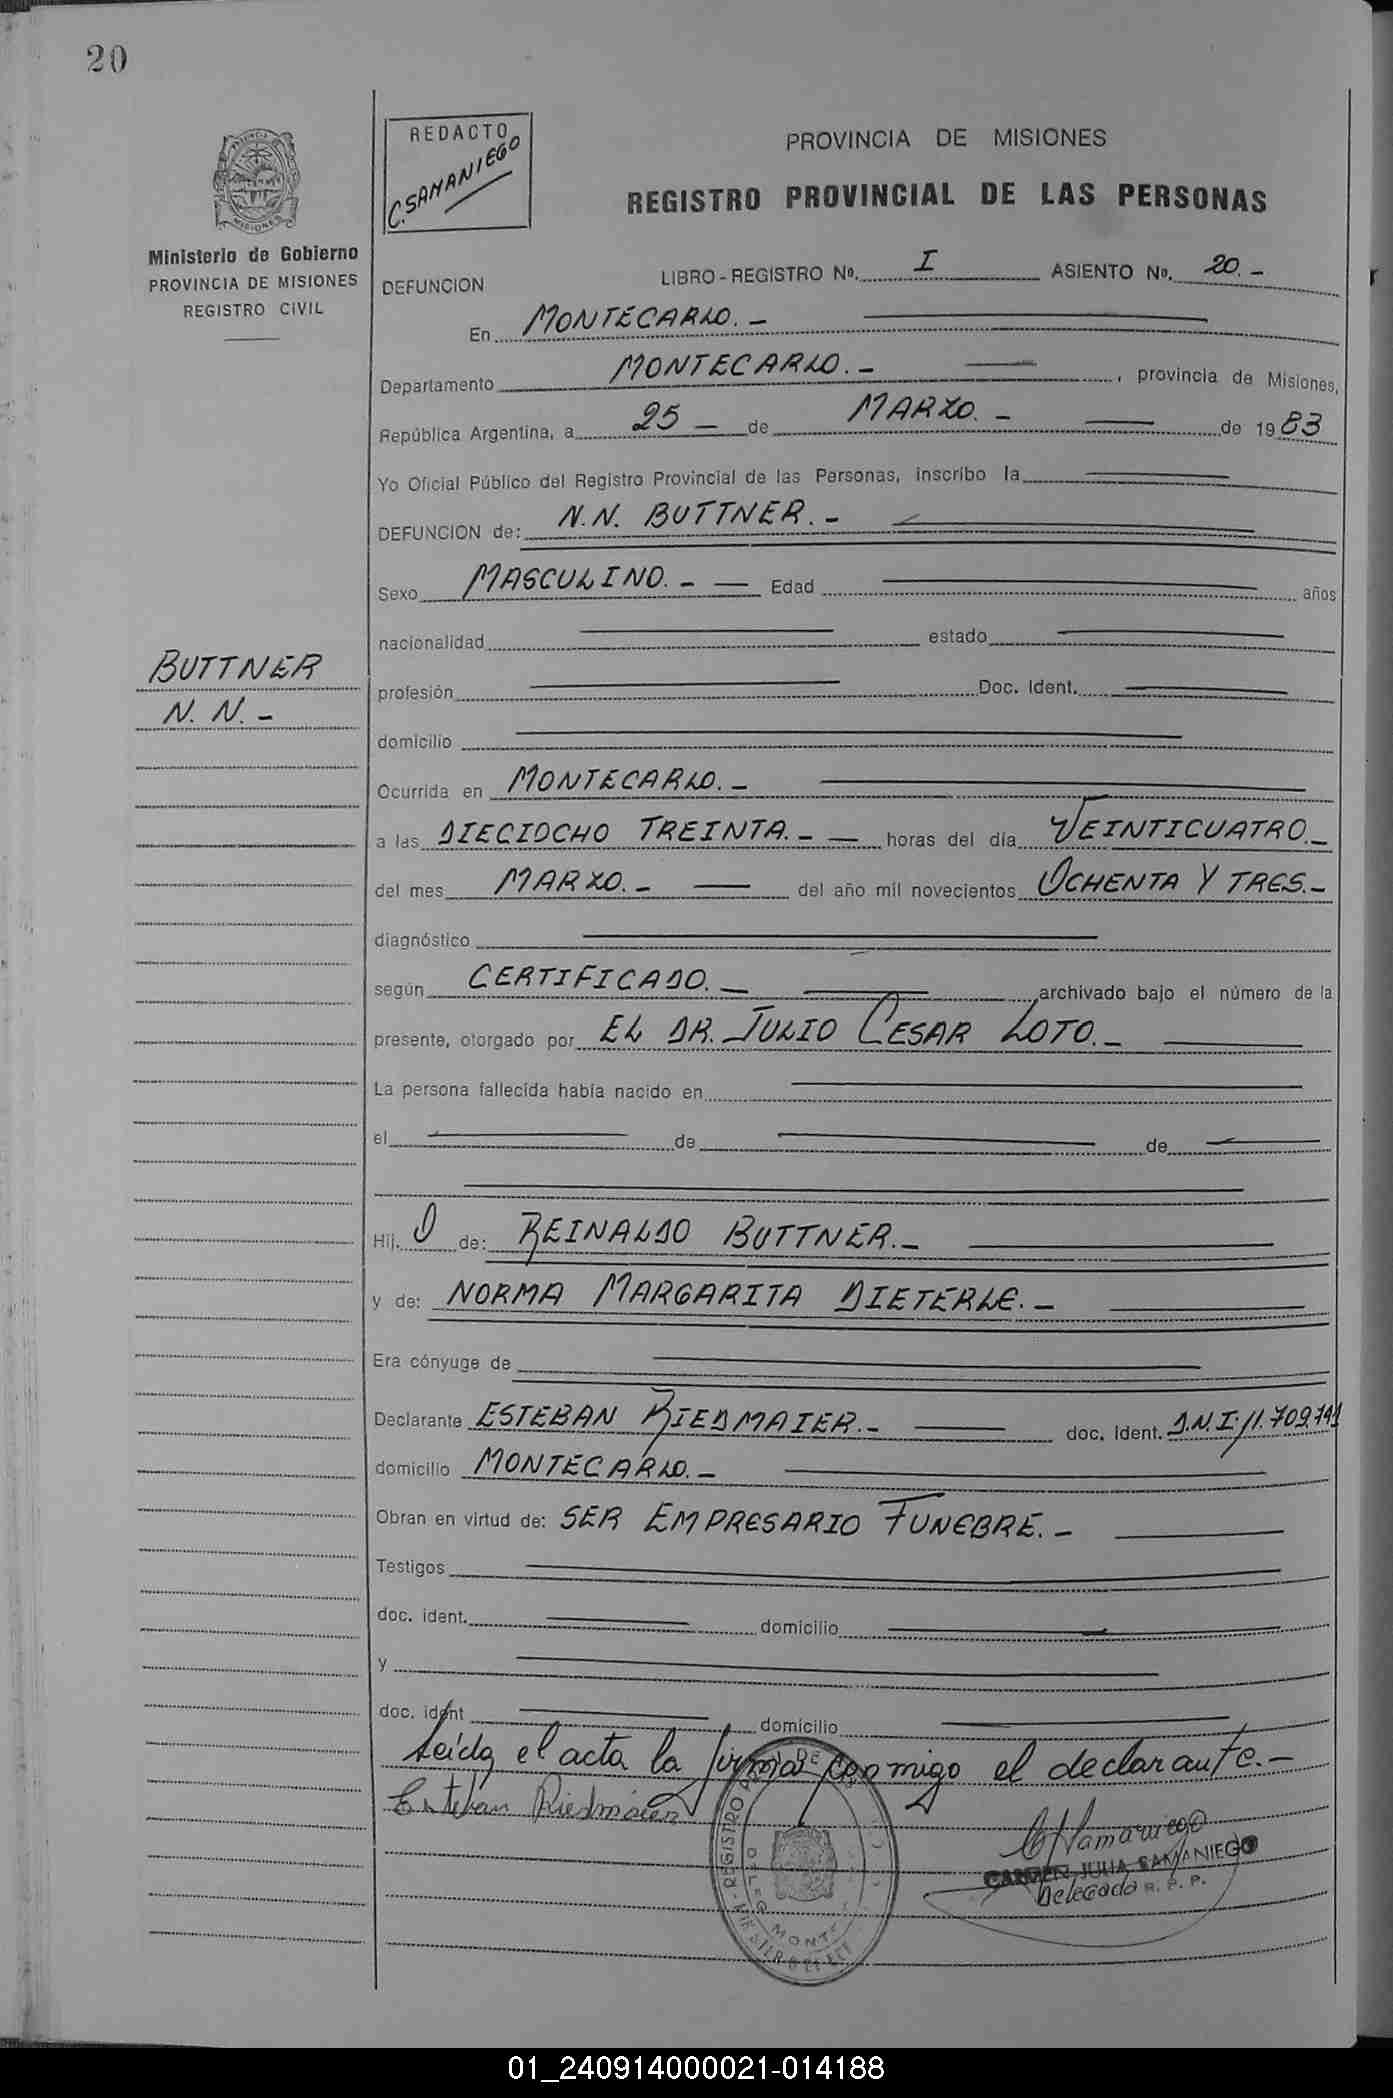 20
REDACTO
C. SAMANIEGO
PROVINCIA DE MISIONES
REGISTRO PROVINCIAL DE LAS PERSONAS
Ministerio de Gobierno
PROVINCIA DE MISIONES
REGISTRO CIVIL
DEFUNCION LIBRO - REGISTRO Nº. I ASIENTO Nº. 20.-
En MONTECARLO.-
Departamento MONTECARLO.- , provincia de Misiones,
República Argentina, a 25 - de MARZO.- de 1983
Yo Oficial Público del Registro Provincial de las Personas, inscribo la
DEFUNCION de: N.N. BUTTNER.-
Sexo MASCULINO.- Edad años
nacionalidad estado
BUTTNER
N. N.-
profesión Doc. Ident.
domicilio
Ocurrida en MONTECARLO.-
a las DIECIOCHO TREINTA.- horas del día VEINTICUATRO.-
del mes MARZO.- del año mil novecientos OCHENTA Y TRES.-
diagnóstico
según CERTIFICADO.- archivado bajo el número de la
presente, otorgado por EL DR. JULIO CESAR LOTO.-
La persona fallecida había nacido en
el de de
Hij. O de: REINALDO BUTTNER.-
y de: NORMA MARGARITA DIETERLE.-
Era cónyuge de
Declarante ESTEBAN RIEDMAIER.- doc. Ident. D.N.I. 11.709.741
domicilio MONTECARLO.-
Obran en virtud de: SER EMPRESARIO FUNEBRE.-
Testigos
doc. ident. domicilio
y
doc. ident domicilio
Leída el acta la firma conmigo el declarante.-
Esteban Riedmaier
CSamaniego
CARMEN JULIA SAMANIEGO
Delegada R. P. P.
REGISTRO
MONTE
01_240914000021-014188